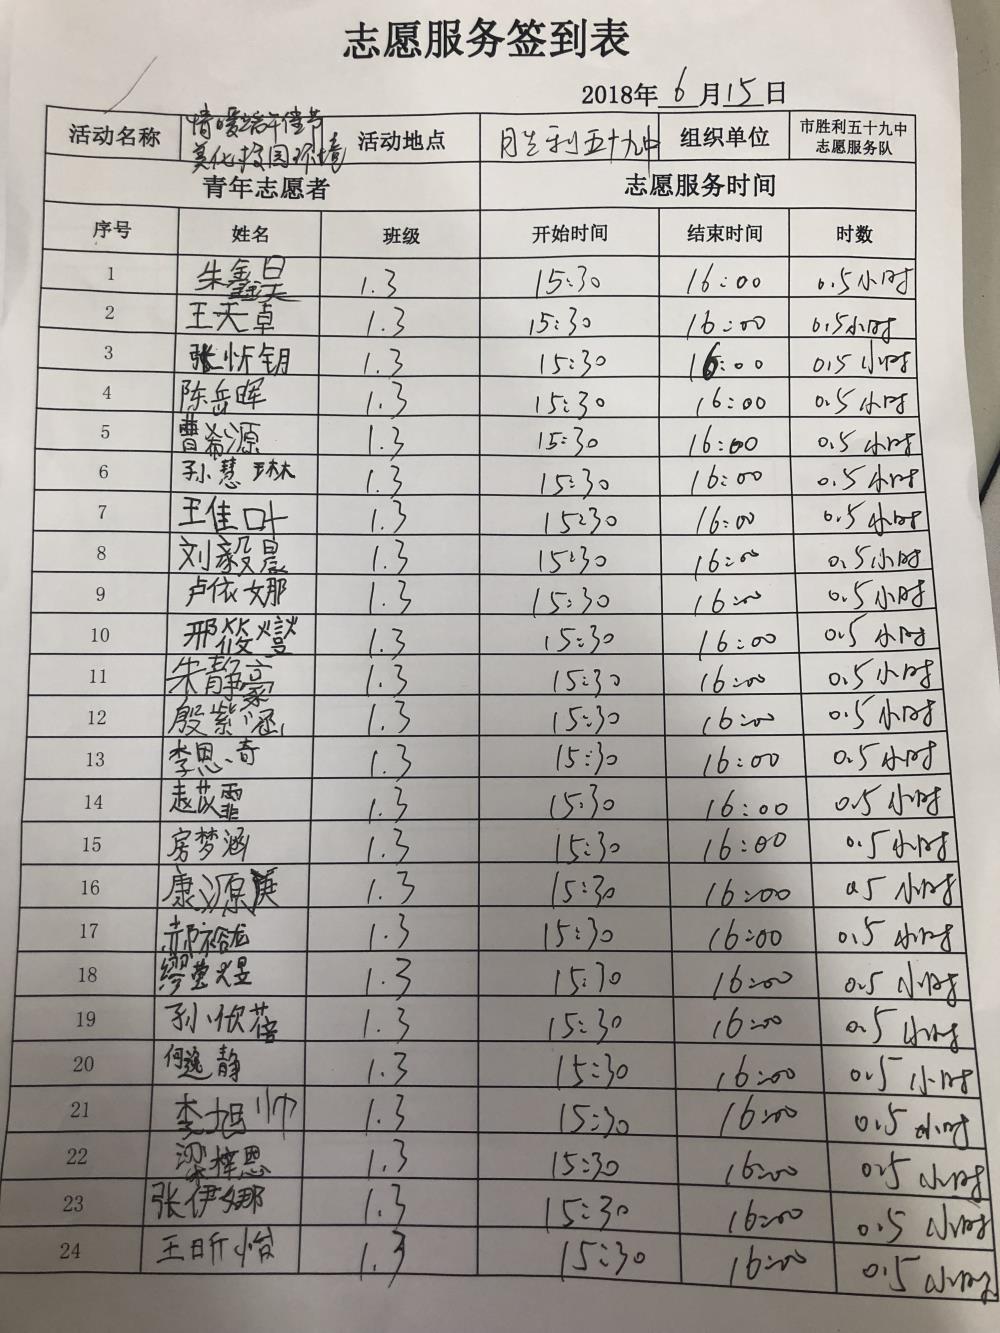 志愿服务签到表
2018年6月15日
活动名称 情暖端午佳节 美化校园环境 活动地点 胜利五十九中 组织单位 市胜利五十九中志愿服务队
青年志愿者 志愿服务时间
序号 姓名 班级 开始时间 结束时间 时数
1 朱鑫昊 1.3 15:30 16:00 0.5小时
2 王天卓 1.3 15:30 16:00 0.5小时
3 张忻钥 1.3 15:30 16:00 0.5小时
4 陈岳晖 1.3 15:30 16:00 0.5小时
5 曹希源 1.3 15:30 16:00 0.5小时
6 孙慧琳 1.3 15:30 16:00 0.5小时
7 王佳叶 1.3 15:30 16:00 0.5小时
8 刘毅晨 1.3 15:30 16:00 0.5小时
9 卢依娜 1.3 15:30 16:00 0.5小时
10 邢筱 1.3 15:30 16:00 0.5小时
11 朱静豪 1.3 15:30 16:00 0.5小时
12 殷紫涵 1.3 15:30 16:00 0.5小时
13 李思奇 1.3 15:30 16:00 0.5小时
14 赵苡霏 1.3 15:30 16:00 0.5小时
15 房梦涵 1.3 15:30 16:00 0.5小时
16 康源 1.3 15:30 16:00 0.5小时
17 郝裕龙 1.3 15:30 16:00 0.5小时
18 缪莹煜 1.3 15:30 16:00 0.5小时
19 孙欣蓓 1.3 15:30 16:00 0.5小时
20 何逸静 1.3 15:30 16:00 0.5小时
21 李旭帅 1.3 15:30 16:00 0.5小时
22 梁梓恩 1.3 15:30 16:00 0.5小时
23 张伊娜 1.3 15:30 16:00 0.5小时
24 王昕怡 1.3 15:30 16:00 0.5小时